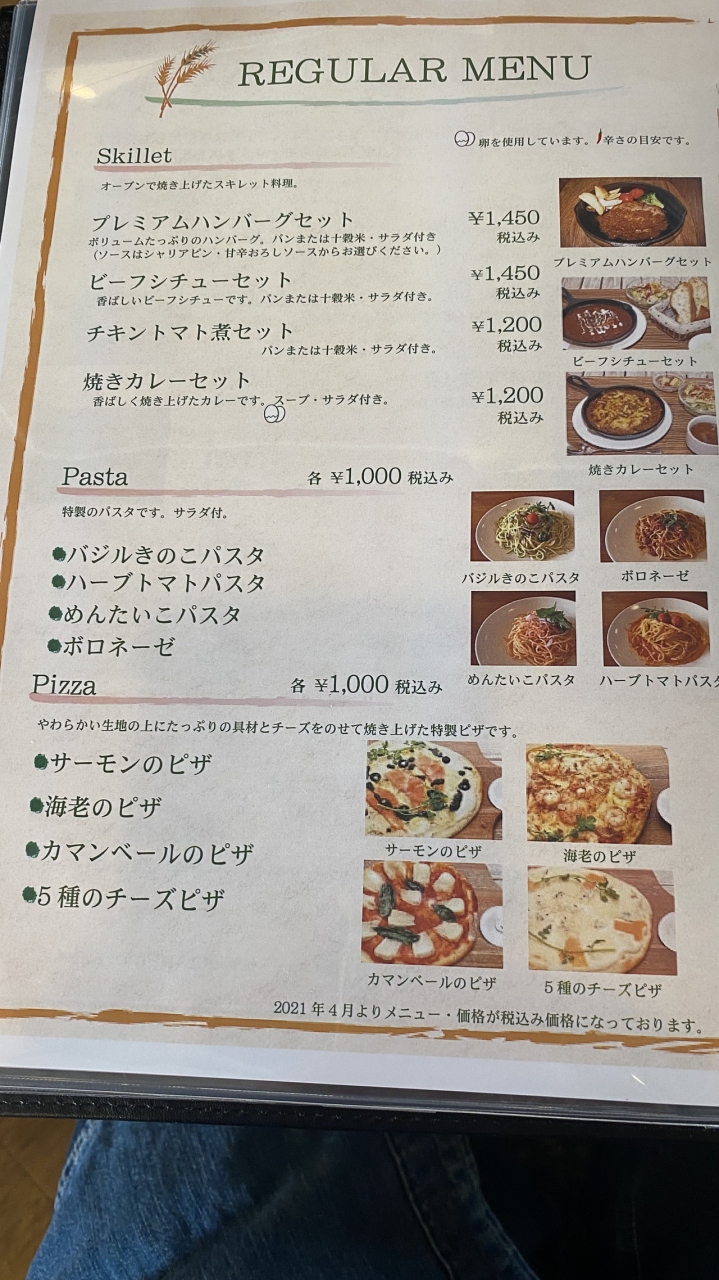 REGULAR MENU
卵を使用しています。辛さの目安です。
Skillet
オーブンで焼き上げたスキレット料理。
プレミアムハンバーグセット ¥1,450
ボリュームたっぷりのハンバーグ。パンまたは十穀米・サラダ付き 税込み
（ソースはシャリアピン・甘辛おろしソースからお選びください。）
プレミアムハンバーグセット
ビーフシチューセット ¥1,450
香ばしいビーフシチューです。パンまたは十穀米・サラダ付き。 税込み
チキントマト煮セット ¥1,200
パンまたは十穀米・サラダ付き。 税込み
ビーフシチューセット
焼きカレーセット ¥1,200
香ばしく焼き上げたカレーです。スープ・サラダ付き。 税込み
焼きカレーセット
Pasta 各 ¥1,000 税込み
特製のパスタです。サラダ付。
●バジルきのこパスタ
●ハーブトマトパスタ
●めんたいこパスタ
●ボロネーゼ
バジルきのこパスタ ボロネーゼ
めんたいこパスタ ハーブトマトパスタ
Pizza 各 ¥1,000 税込み
やわらかい生地の上にたっぷりの具材とチーズをのせて焼き上げた特製ピザです。
●サーモンのピザ
●海老のピザ
●カマンベールのピザ
●5種のチーズピザ
サーモンのピザ 海老のピザ
カマンベールのピザ 5種のチーズピザ
2021年4月よりメニュー・価格が税込み価格になっております。